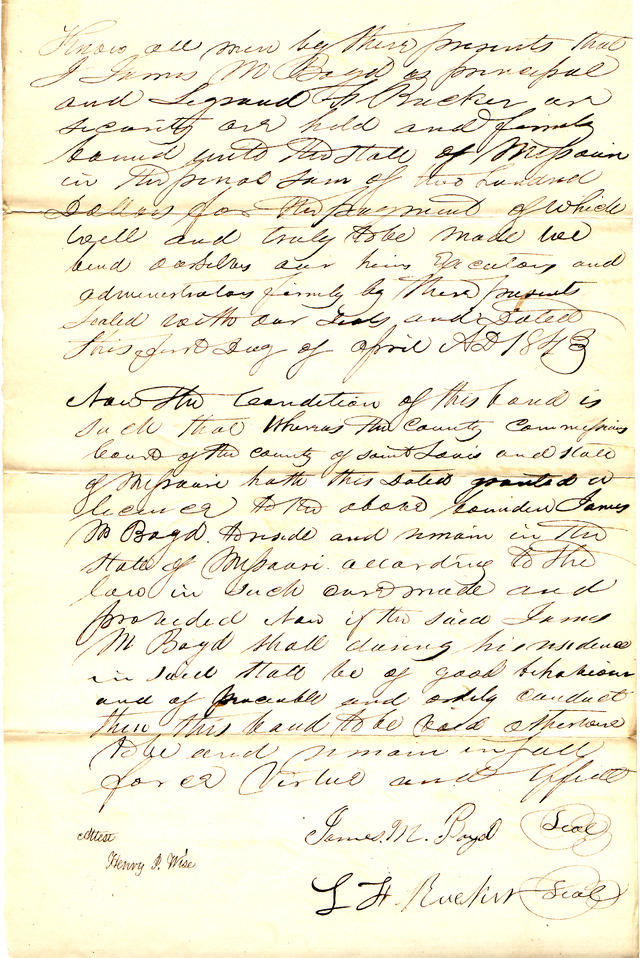 Know all men by these presents that
I James M Boyd as principal
and Legrand H Rucker as
security are held and firmly
bound unto the state of Missouri
in the penal sum of two hundred
Dollars for the payment of which
well and truly to be made we
bind ourselves our heirs Executors and
administrators firmly by these presents
sealed with our seals and Dated
this first Day of April AD 1843
Now the Condition of this bond is
such that Whereas the County Commissions
Court of the county of saint Louis and state
of Missouri hath this Dated granted a
licence to the above bounden James
M Boyd to reside and remain in the
State of Missouri according to the
law in such case made and
provided Now if the said James
M Boyd shall during his residence
in said state be of good behaviour
and of peaceable and orderly conduct
then this bond to be void otherwise
to be and remain in full
force Virtue and Effect
James M. Boyd Seal
Attest
Henry P. Wise
L H Rucker Seal